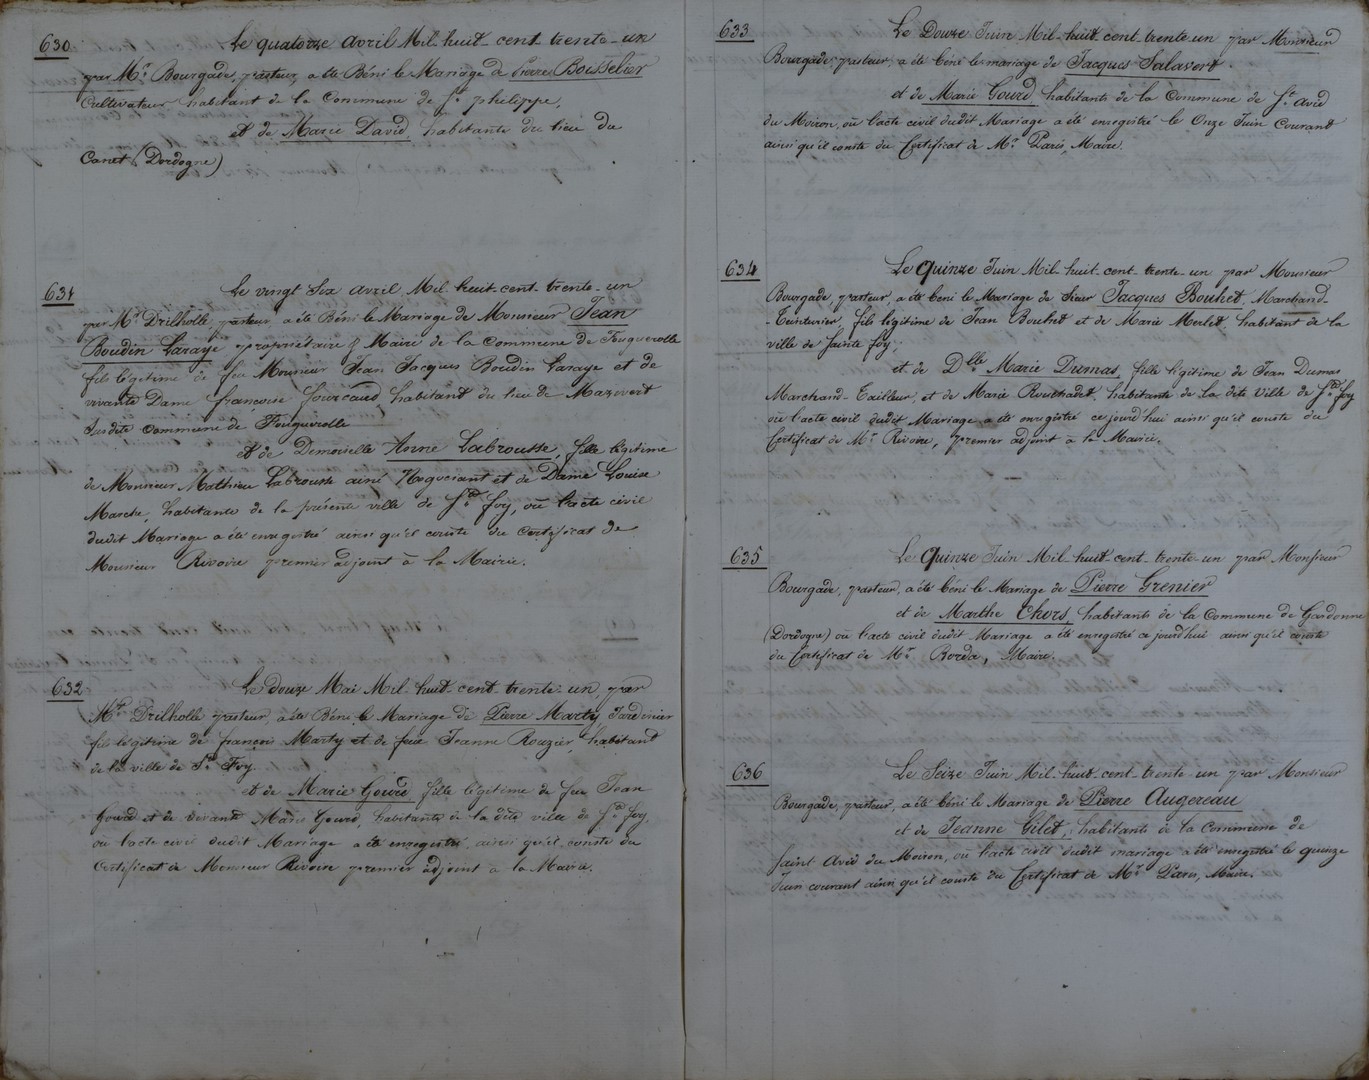 630
Le quatorze avril Mil-huit-cent-trente-un
par Mr. Bourgade, pasteur, a été Béni le Mariage de Pierre Boisselier
Cultivateur habitant de la Commune de St. philippe,
et de Marie David, habitante du lieu du
Canet (Dordogne)
631
Le vingt Six avril Mil huit-cent-trente-un
par Mr. Drilholle, pasteur, a été Béni le Mariage de Monsieur Jean
Boudin Laraye propriétaire & Maire de la Commune de Fougueyrolle
fils légitime de feu Monsieur Jean Jacques Boudin Laraye et de
vivante Dame françoise habitant du lieu de
Susdite Commune de
et de Demoiselle Anne Labrousse, fille légitime
de Monsieur Mathieu Labrousse ainé Négociant et de Dame Louise
Marche, habitante de la présente ville de Ste. foy, où l'acte civil
dudit Mariage a été enregistré ainsi qu'il conste du Certificat de
Monsieur Rivoire premier adjoint à la Mairie.
632
Le douze Mai Mil-huit-cent-trente-un, par
Mr. Drilholle pasteur, a été Béni le Mariage de Pierre Marty, Jardinier
fils légitime de françois Marty et de feue Jeanne Rouzier, habitant
de la ville de Ste. Foy.
et de Marie Gourd fille légitime de feu Jean
Gourd et de vivante Marie Gourd, habitante de la dite ville de Ste. foy,
ou l'acte civil dudit Mariage a été enregistré, ainsi qu'il conste du
Certificat de Monsieur Rivoire premier adjoint à la Mairie.
633
Le Douze Juin Mil-huit-cent-trente-un par Monsieur
Bourgade, pasteur, a été béni le mariage de Jacques Salavert.
et de Marie Gourd habitants de la Commune de St. avid
du Moiron, où l'acte civil dudit Mariage a été enregistré le Onze Juin Courant
ainsi qu'il conste du Certificat de Mr. Paris, Maire.
634
Le Quinze Juin Mil-huit-cent-trente-un par Monsieur
Bourgade, pasteur, a été béni le Mariage de Sieur Jacques Bouhet, Marchand-
-Teinturier, fils légitime de Jean Bouhet et de Marie Merlet, habitant de la
ville de Sainte foy;
et de Dlle Marie Dumas, fille légitime de Jean Dumas
Marchand-Tailleur, et de Marie habitante de la dite Ville de Ste. foy
où l'acte civil dudit Mariage a été enregistré cejourd'hui ainsi qu'il conste du
Certificat de Mr. Rivoire, premier adjoint à la Mairie.
635
Le Quinze Juin Mil-huit-cent-trente-un par Monsieur
Bourgade, pasteur, a été béni le Mariage de Pierre Grenier
et de Marthe Chors, habitants de la Commune de Gardonne
(Dordogne) où l'acte civil dudit Mariage a été enregistré cejourd'hui ainsi qu'il conste
du Certificat de Mr. Borda, Maire.
636
Le Seize Juin Mil-huit-cent-trente-un par Monsieur
Bourgade, pasteur, a été béni le Mariage de Pierre Augereau
et de Jeanne Gilet, habitants de la Commune de
Saint Avid du Moiron, où l'acte civil dudit mariage a été enregistré le quinze
Juin courant ainsi qu'il conste du Certificat de Mr. Paris, Maire.